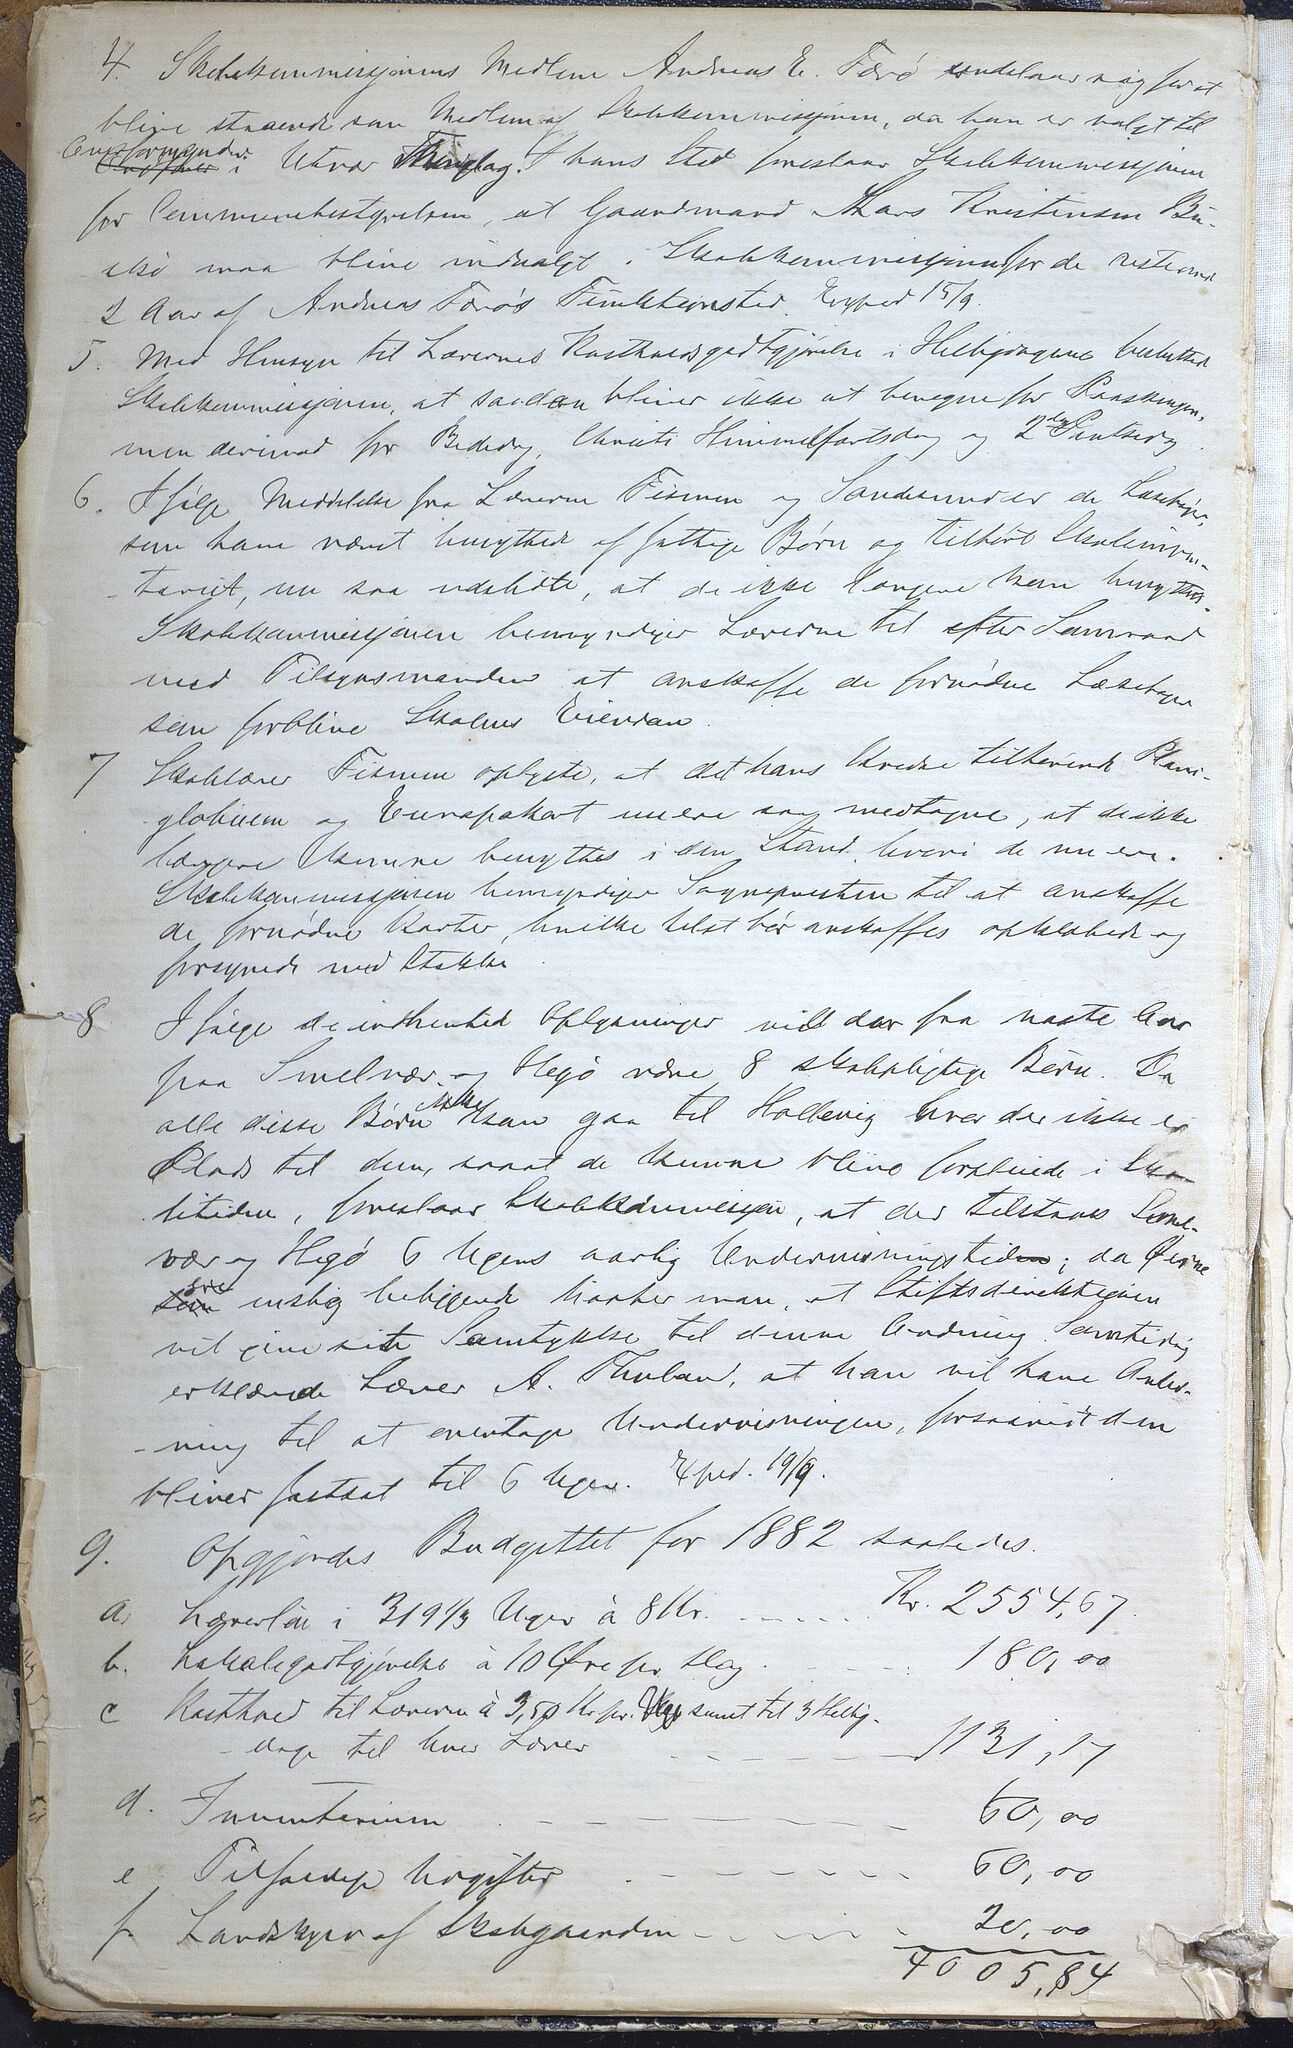 4. Skolekommissjonens Medlem Andreas E. Færø undslaar sig for at
blive staaende som Medlem af Skolekommissjonen, da han er valgt til
Overformynder i Utvær Thinglag. I hans Sted foreslaar Skolekommissjonen
for Communebestyrelsen at Gaardmand Lars Kristensen Bu-
skø maa blive indvalgt i Skolekommissjonen for de resterende
2 Aar af Andreas Færøs Funktionstid. Exped 15/9.
5. Med Hensyn til Lærernes Kostholdsgodtgjørelse i Helligdagene besluttede
Skolekommissjonen, at saadan bliver ikke at beregne for Paasken,
men derimod for Bededag, Christi Himmelfartsdag og 2den Pintsedag.
6. Ifølge Meddelelse fra Lærerne Fismen og Sandesund er de Læsebøger,
som have været benyttede af fattige Børn og tilhøre Skoleinven-
tariet, nu saa udslidte, at de ikke længere kan benyttes.
Skolekommissjonen bemyndiger Lærerne til efter Samraad
med Tilsynsmanden at anskaffe de fornødne Læsebøger
som forblive Skolens Eiendom.
7 Skolelærer Fismen oplyste, at det hans Kredse tilhørende Plani-
globium og Europakart nu ere saa medtagne, at de ikke
længere kunne benyttes i den Stand, hvori de nu ere.
Skolekommissjonen bemyndiger Sognepresten til at anskaffe
de fornødne Karter, hvilke helst bør anskaffes opklæbede og
forsynede med Stokke.
8 Ifølge de indhentede Oplysninger vil der fra næste Aar
paa Smelvær og Hegø være 8 skolepligtige Børn. Da
alle disse Børn ikke kan gaa til Hollevig hvor der ikke er
Plads til dem, saaat de kunne blive forpleiede i Sko-
letiden, foreslaar Skolekommissjon, at der tilstaaes Smel-
vær og Hegø 6 Ugers aarlig Undervisningstid; da Øerne
ere enslig beliggende haaber man, at Stiftsdirektionen
vil give sit Samtykke til denne Ordning. Samtidig
erklærede Lærer A. Thuland, at han vil have Anled-
ning til at overtage Undervisningen, forsaavidt den
bliver fastsat til 6 Uger. Exped. 19/9.
9. Opgjordes Budgettet for 1882 saaledes.
a. Lærerløn i 319 1/3 Uger à 8 Kr. Kr. 2554,67
b. Lokalegodtgjørelse à 10 Øre pr. Dag 180,00
c Kosthold til Lærerne à 3,50 Kr pr. Uge samt til 3 Hellig-
dage til hver Lærer 1131,17
d. Inventarium 60,00
e Tilfældige Udgifter 60,00
f. Landskyld af Skolegaarden 20,00
4005,84